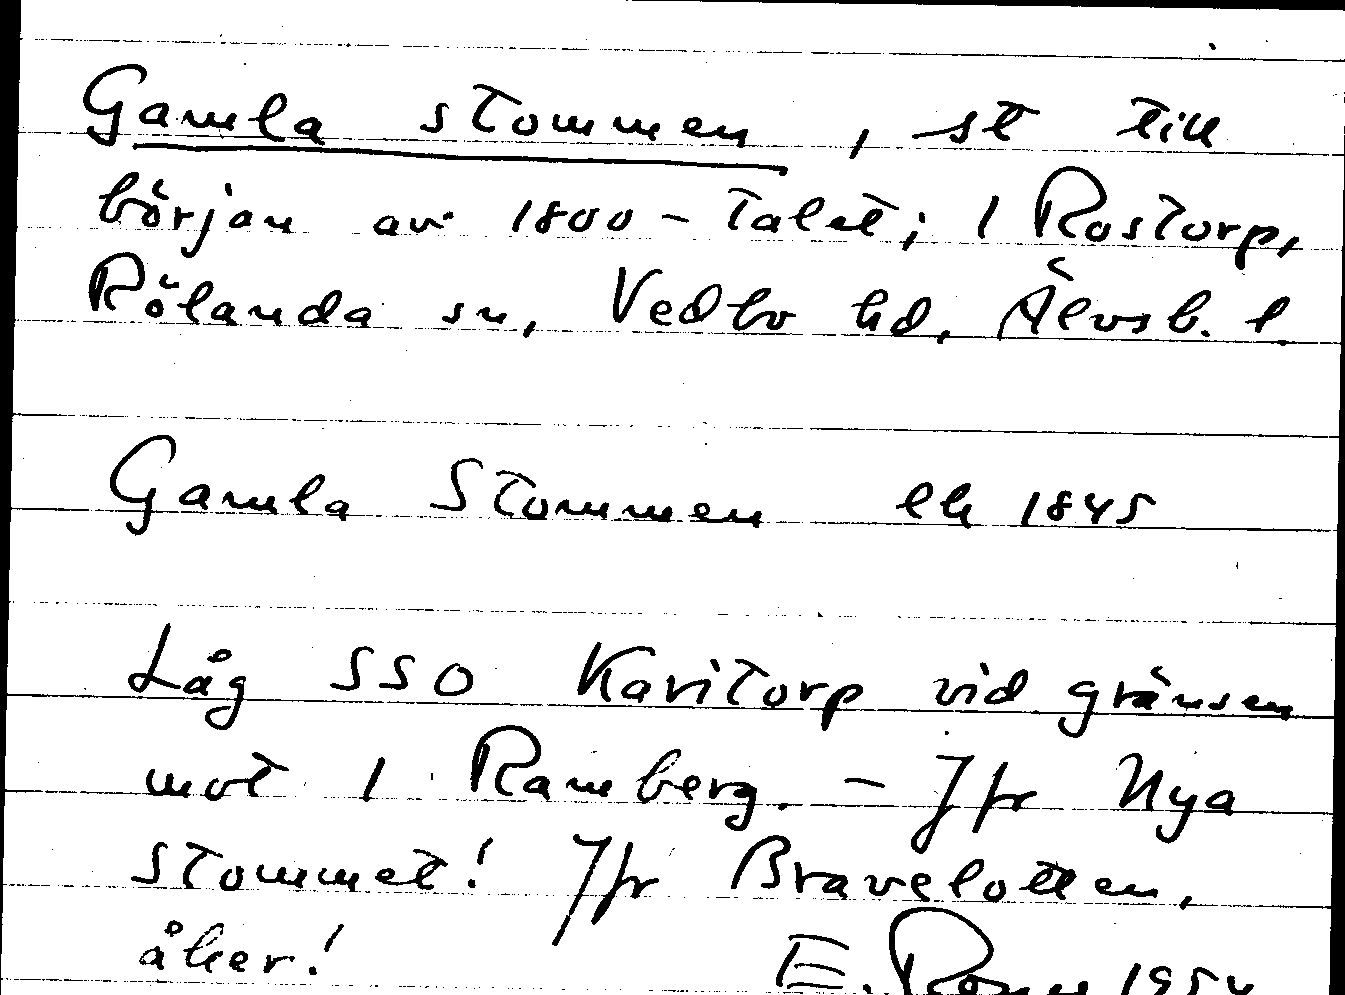 Gamla stommen, st till
början av 1800-talet; 1 Rostorp,
Rölanda sn, Vedbo hd, Älvsb. l.
Gamla Stommen lh 1845
Låg SSO Karitorp vid gränsen
mot 1 Ramberg. - Jfr Nya
stommet! Jfr Bravelotten,
åker!
E.